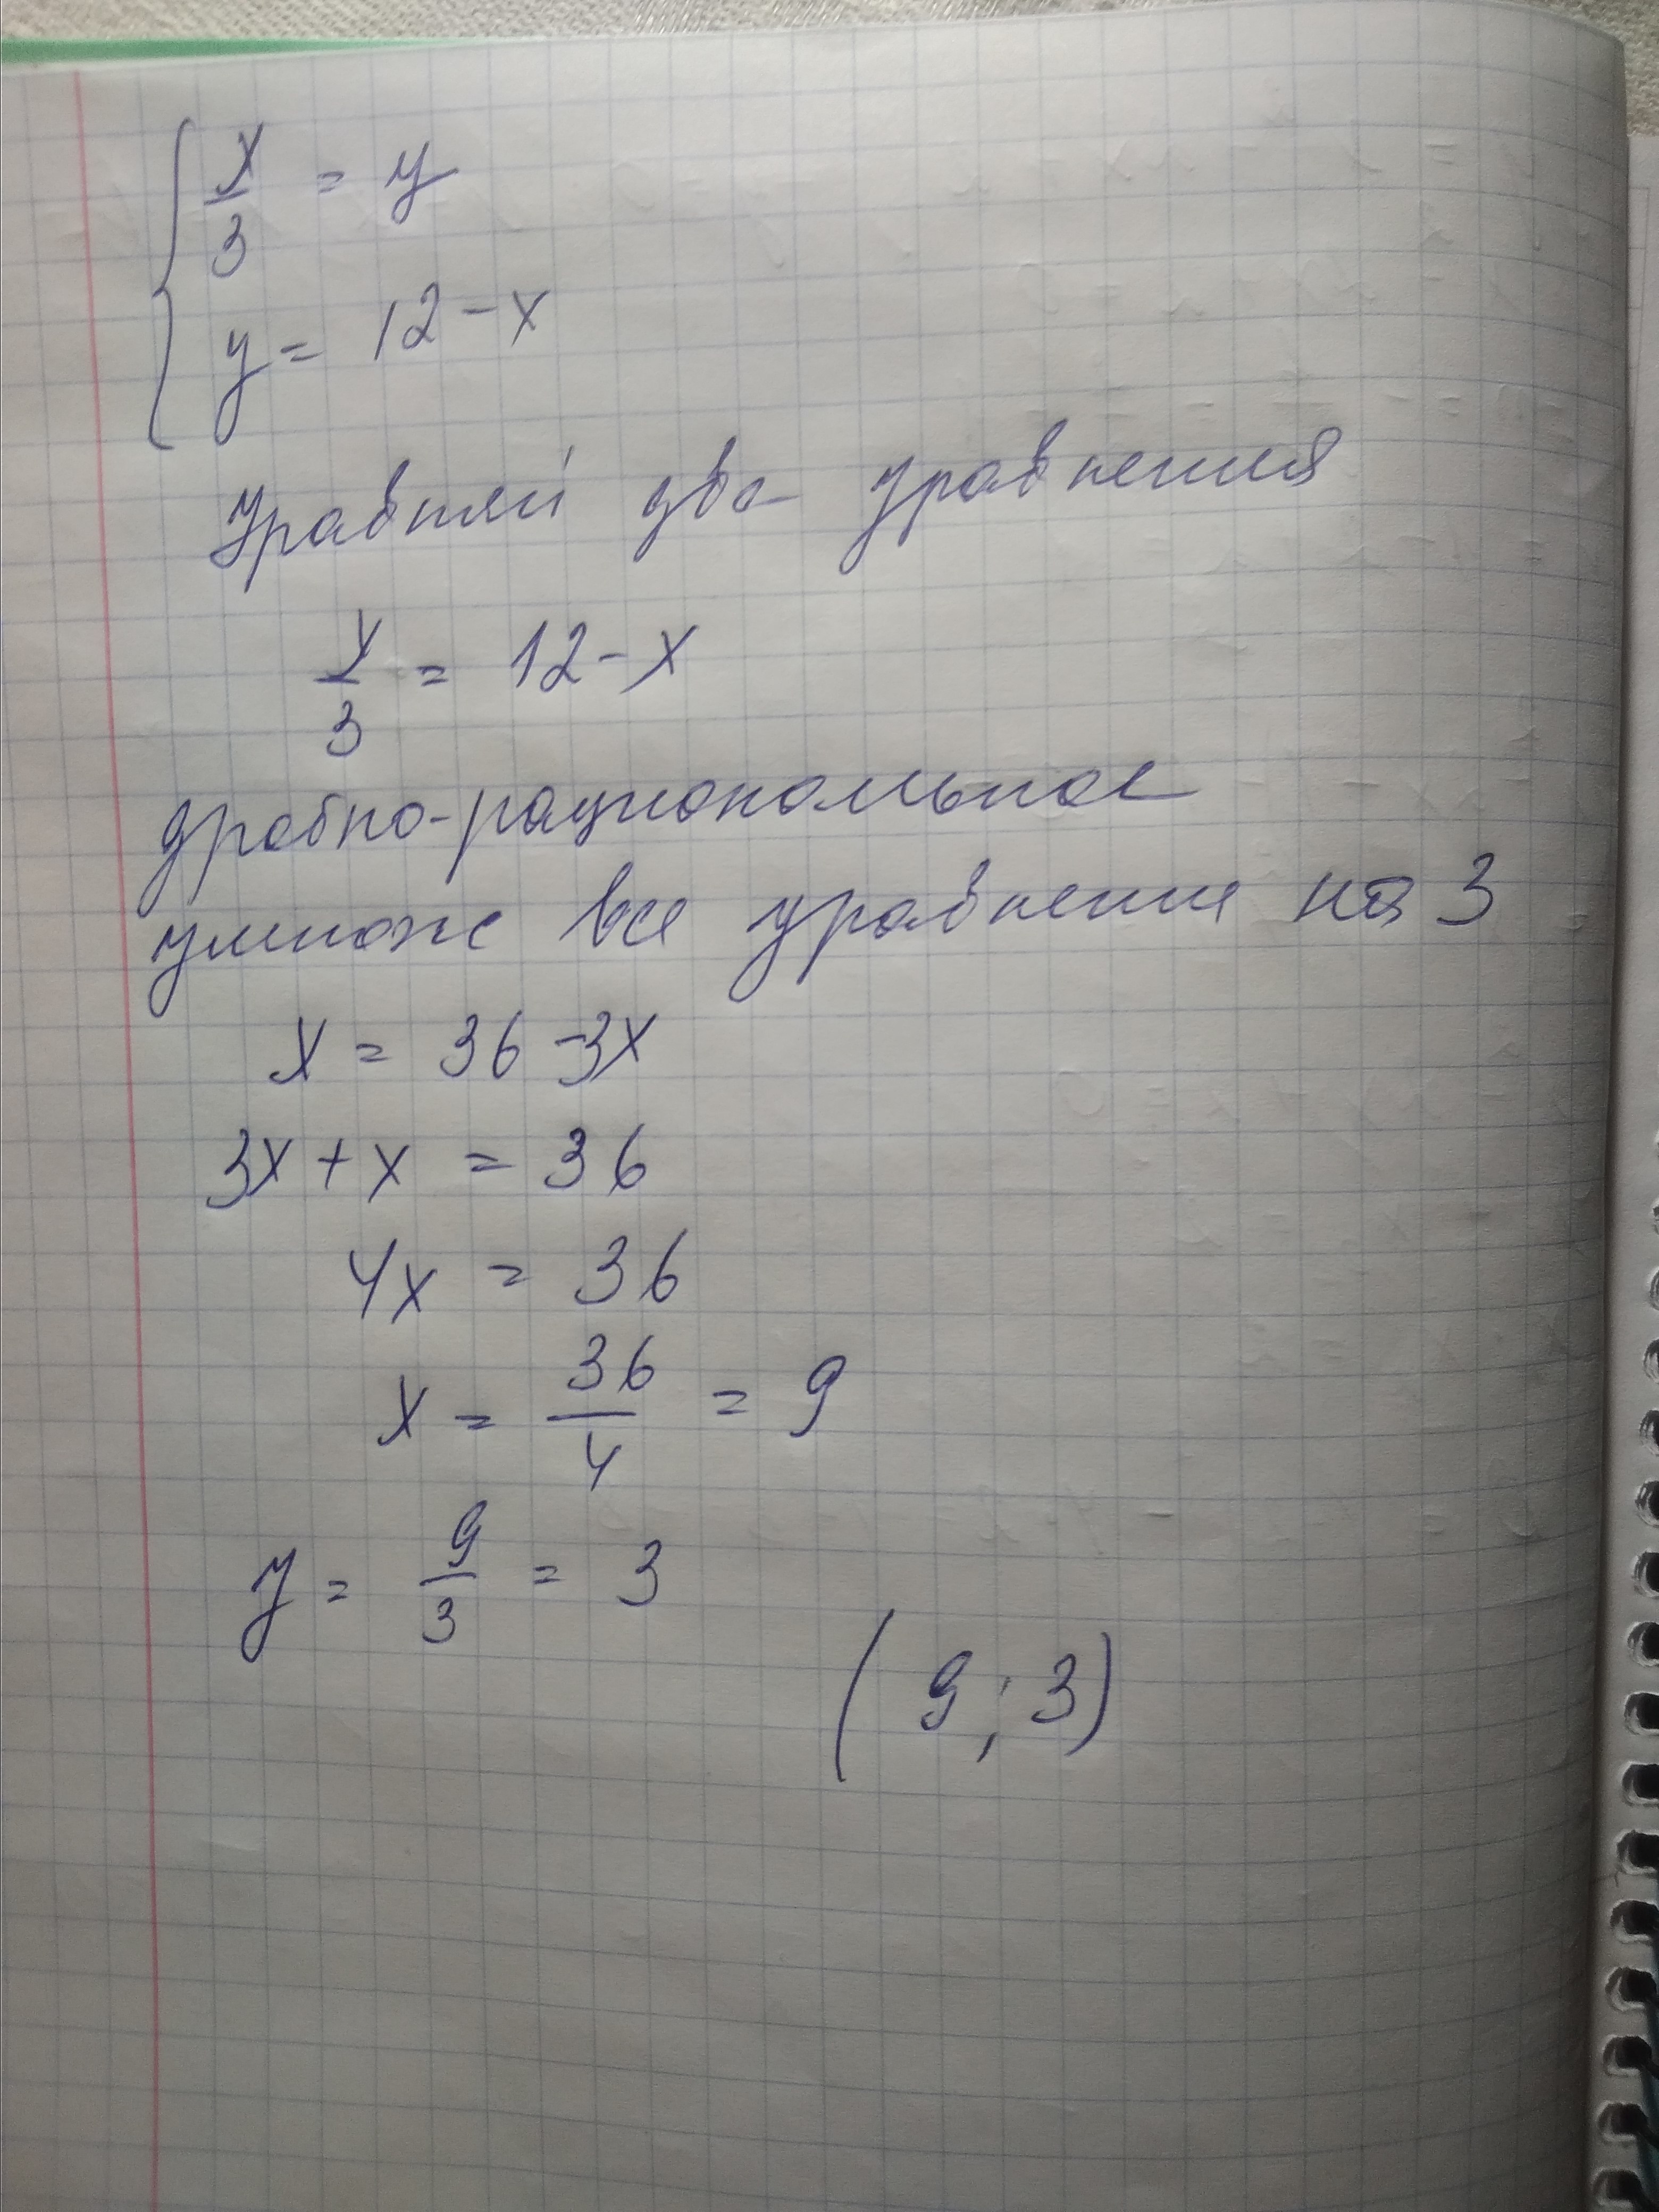 x/3 = y
y = 12 - x
Уравняй два уравнения
x/3 = 12 - x
дробно-рациональное
умнож все уравнение на 3
x = 36 - 3x
3x + x = 36
4x = 36
x = 36/4 = 9
y = 9/3 = 3
(9; 3)